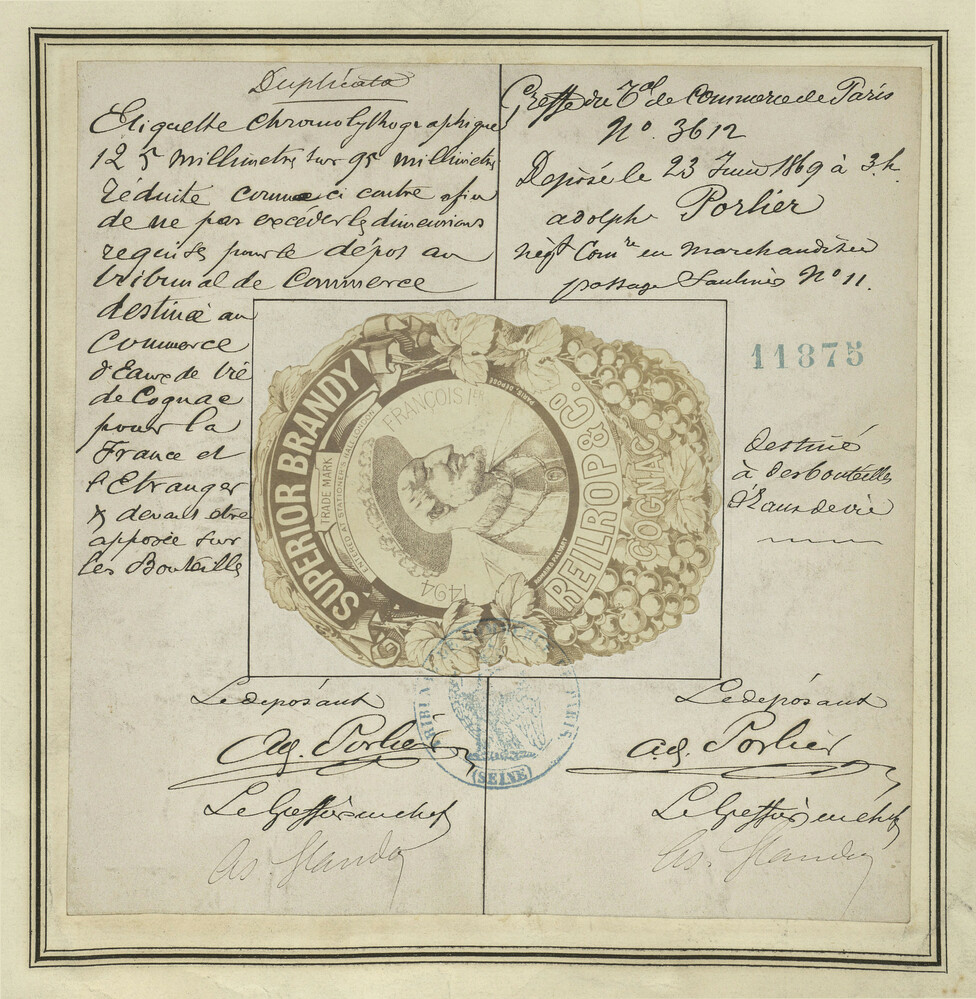 Duplicata
Etiquette chromolythographique
125 millimetres sur 95 millimetres
réduite comme ci contre afin
de ne pas excéder les dimensions
requises pour le dépot au
tribunal de Commerce
destinée au
Commerce
d'Eaux de Vie
de Cognac
pour la
France et
l'Etranger
devant etre
apposée sur
les Bouteilles
Greffe du Tal de Commerce de Paris
No. 3612
Déposé le 23 Juin 1869 à 3 h
adolphe Porlier
négt Comre en marchandises
passage Saulnier No 11.
11875
Destiné
à des bouteilles
d'Eaux de vie
SUPERIOR BRANDY
TRADE MARK
ENTERED AT STATIONER'S HALL LONDON
FRANÇOIS 1ER
1494
PARIS, DÉPOSÉ
REILROP & CO.
COGNAC
TRIBUNAL DE COMMERCE PARIS
(SEINE)
Le déposant
Ad. Porlier
Le Greffier en chef
Le déposant
ad. Porlier
Le Greffier en chef